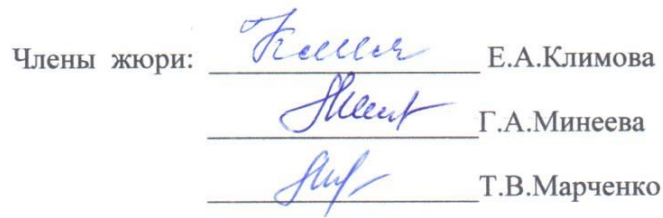 Члены жюри: Е.А.Климова
Г.А.Минеева
Т.В.Марченко